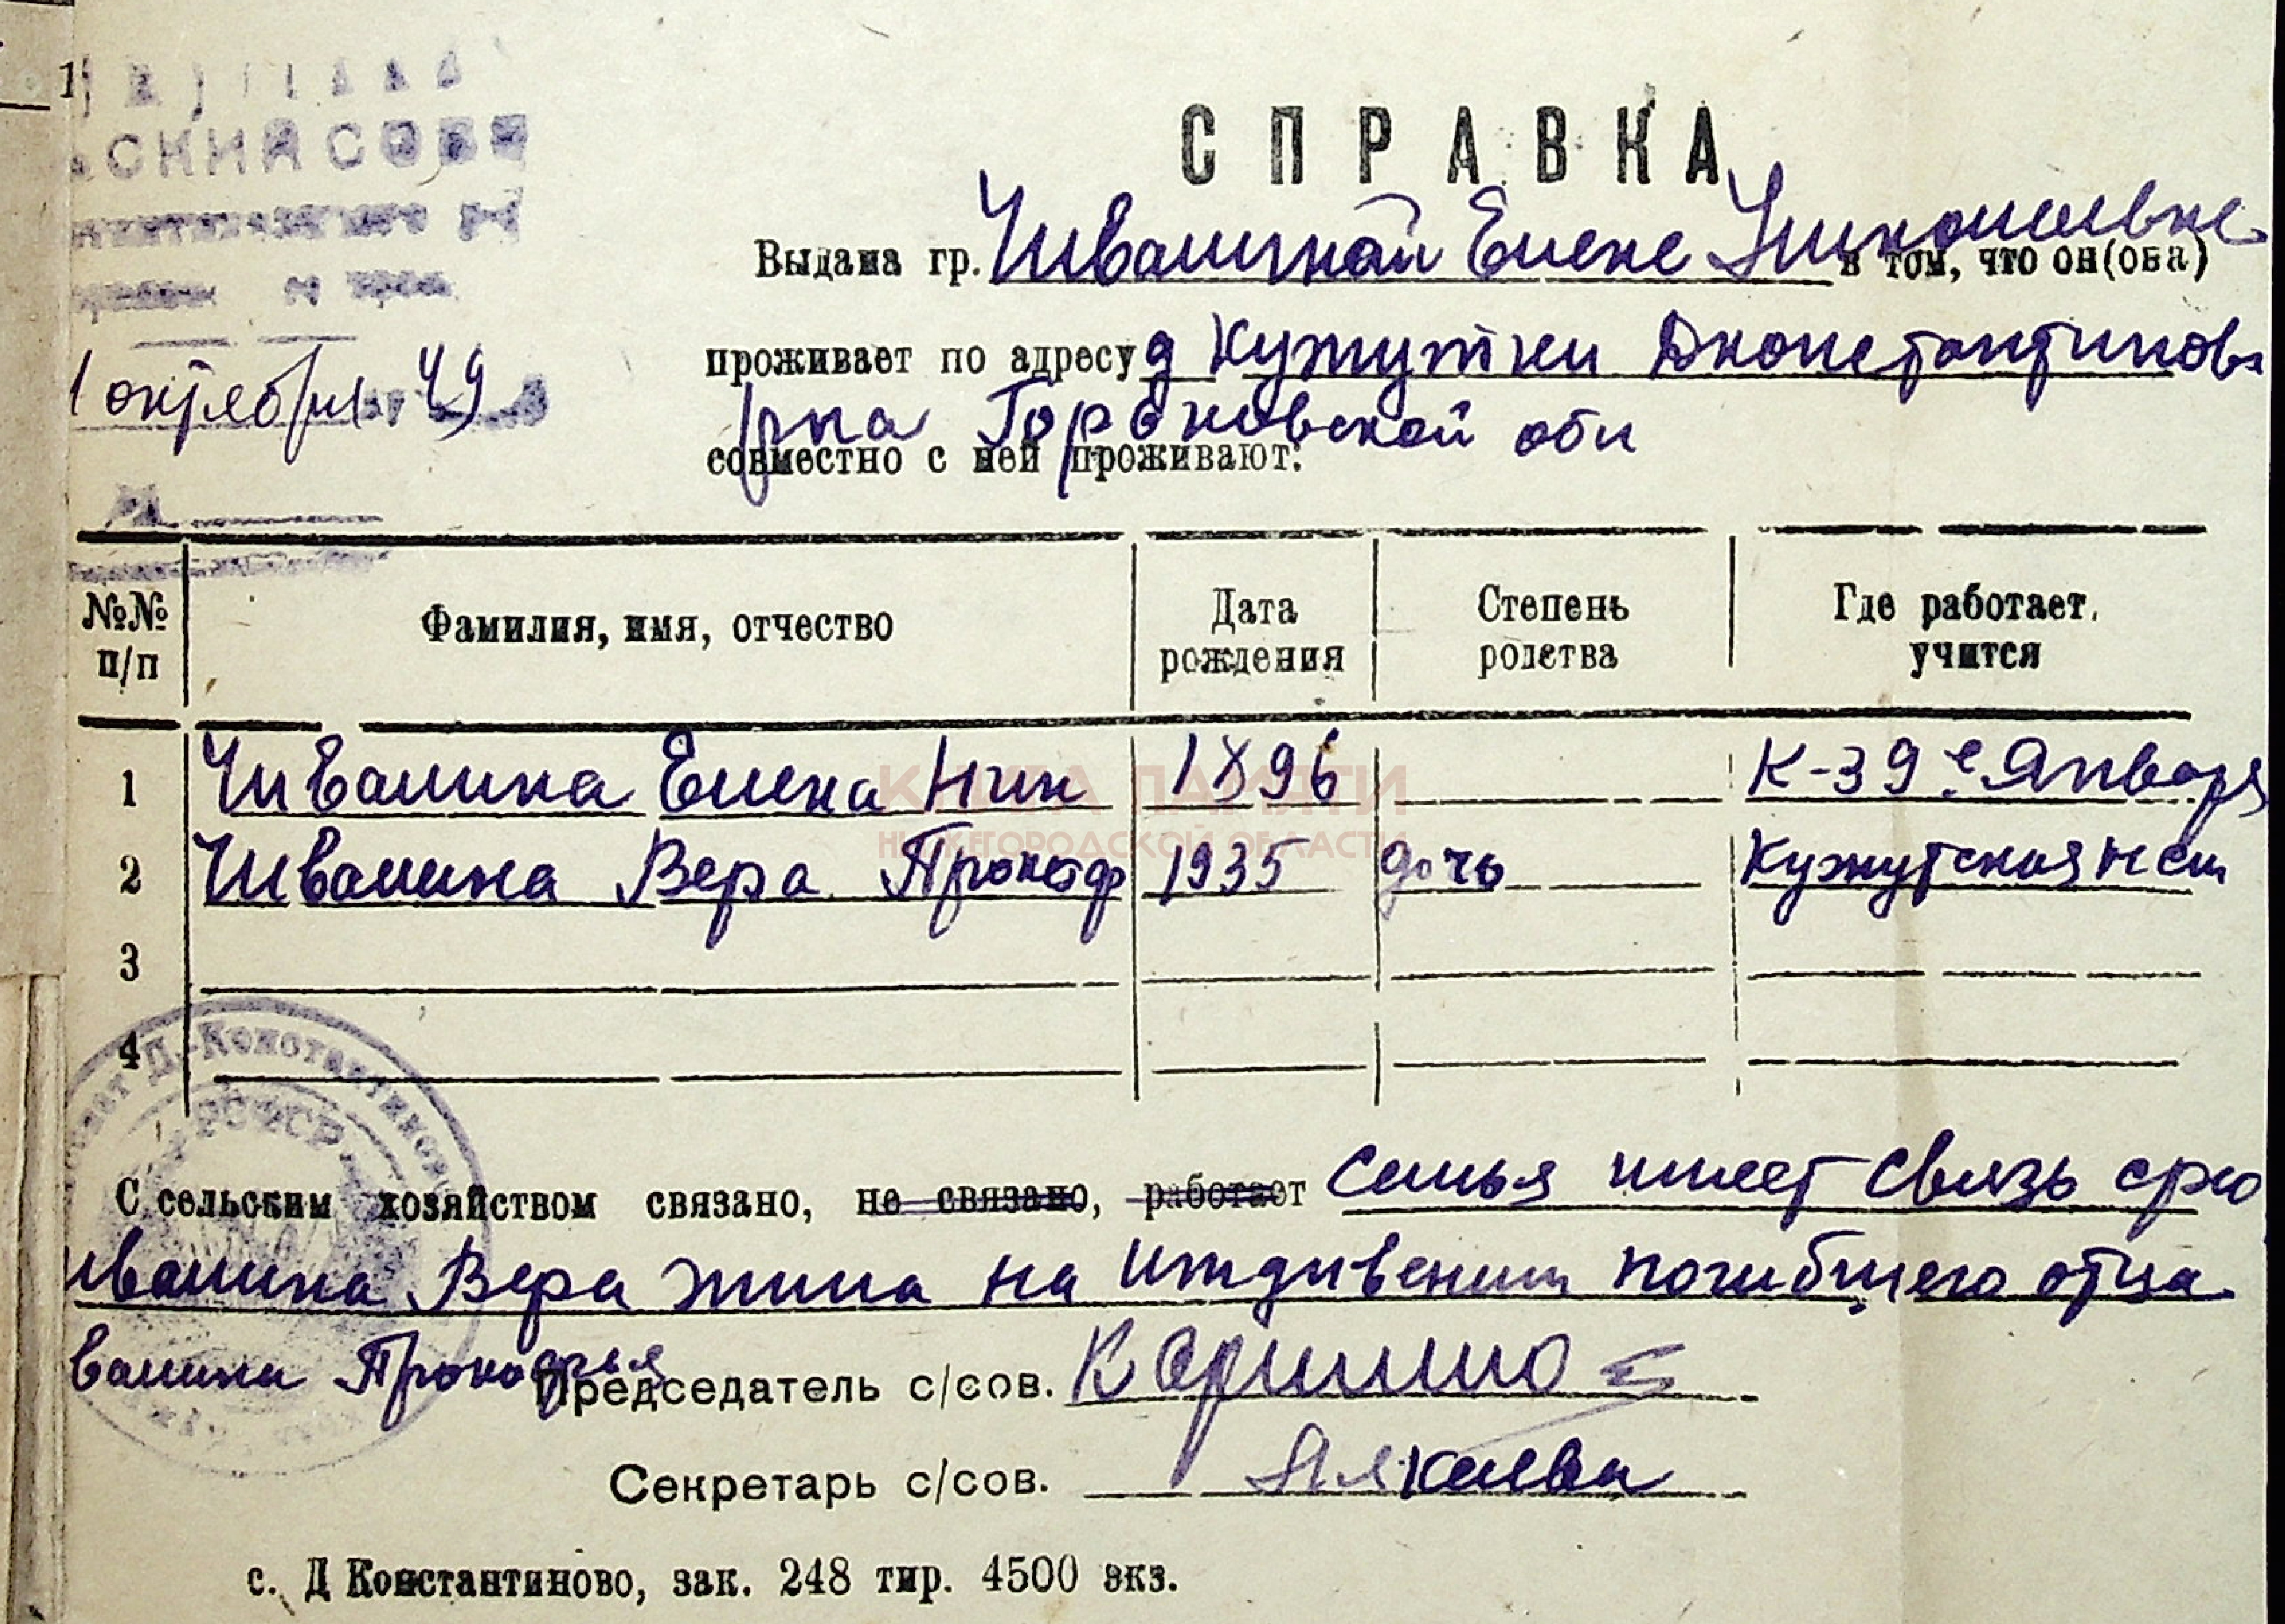 СКИЙ СОВЕТ
СПРАВКА
Выдана гр. Швалиной Елене Николаевне в том, что он(она)
1 октября 49
проживает по адресу д Кужутки Дконстантиновск
рна Горьковской обл
совместно с ней проживают:
№№ п/п Фамилия, имя, отчество Дата рождения Степень родства Где работает, учится
1 Швалина Елена Ник 1896 К-з 9е Января
КНИГА ПАМЯТИ
НИЖЕГОРОДСКОЙ ОБЛАСТИ
2 Швалина Вера Прокоф 1935 дочь Кужутская нсш
3
4
Д.-Константинов
РСФСР
С сельским хозяйством связано, не связано, работает семья имеет связь
валина Вера жила на иждивении погибшего отца
валина Прокофья
Председатель с/сов.
Секретарь с/сов.
с. Д Константиново, зак. 248 тир. 4500 экз.